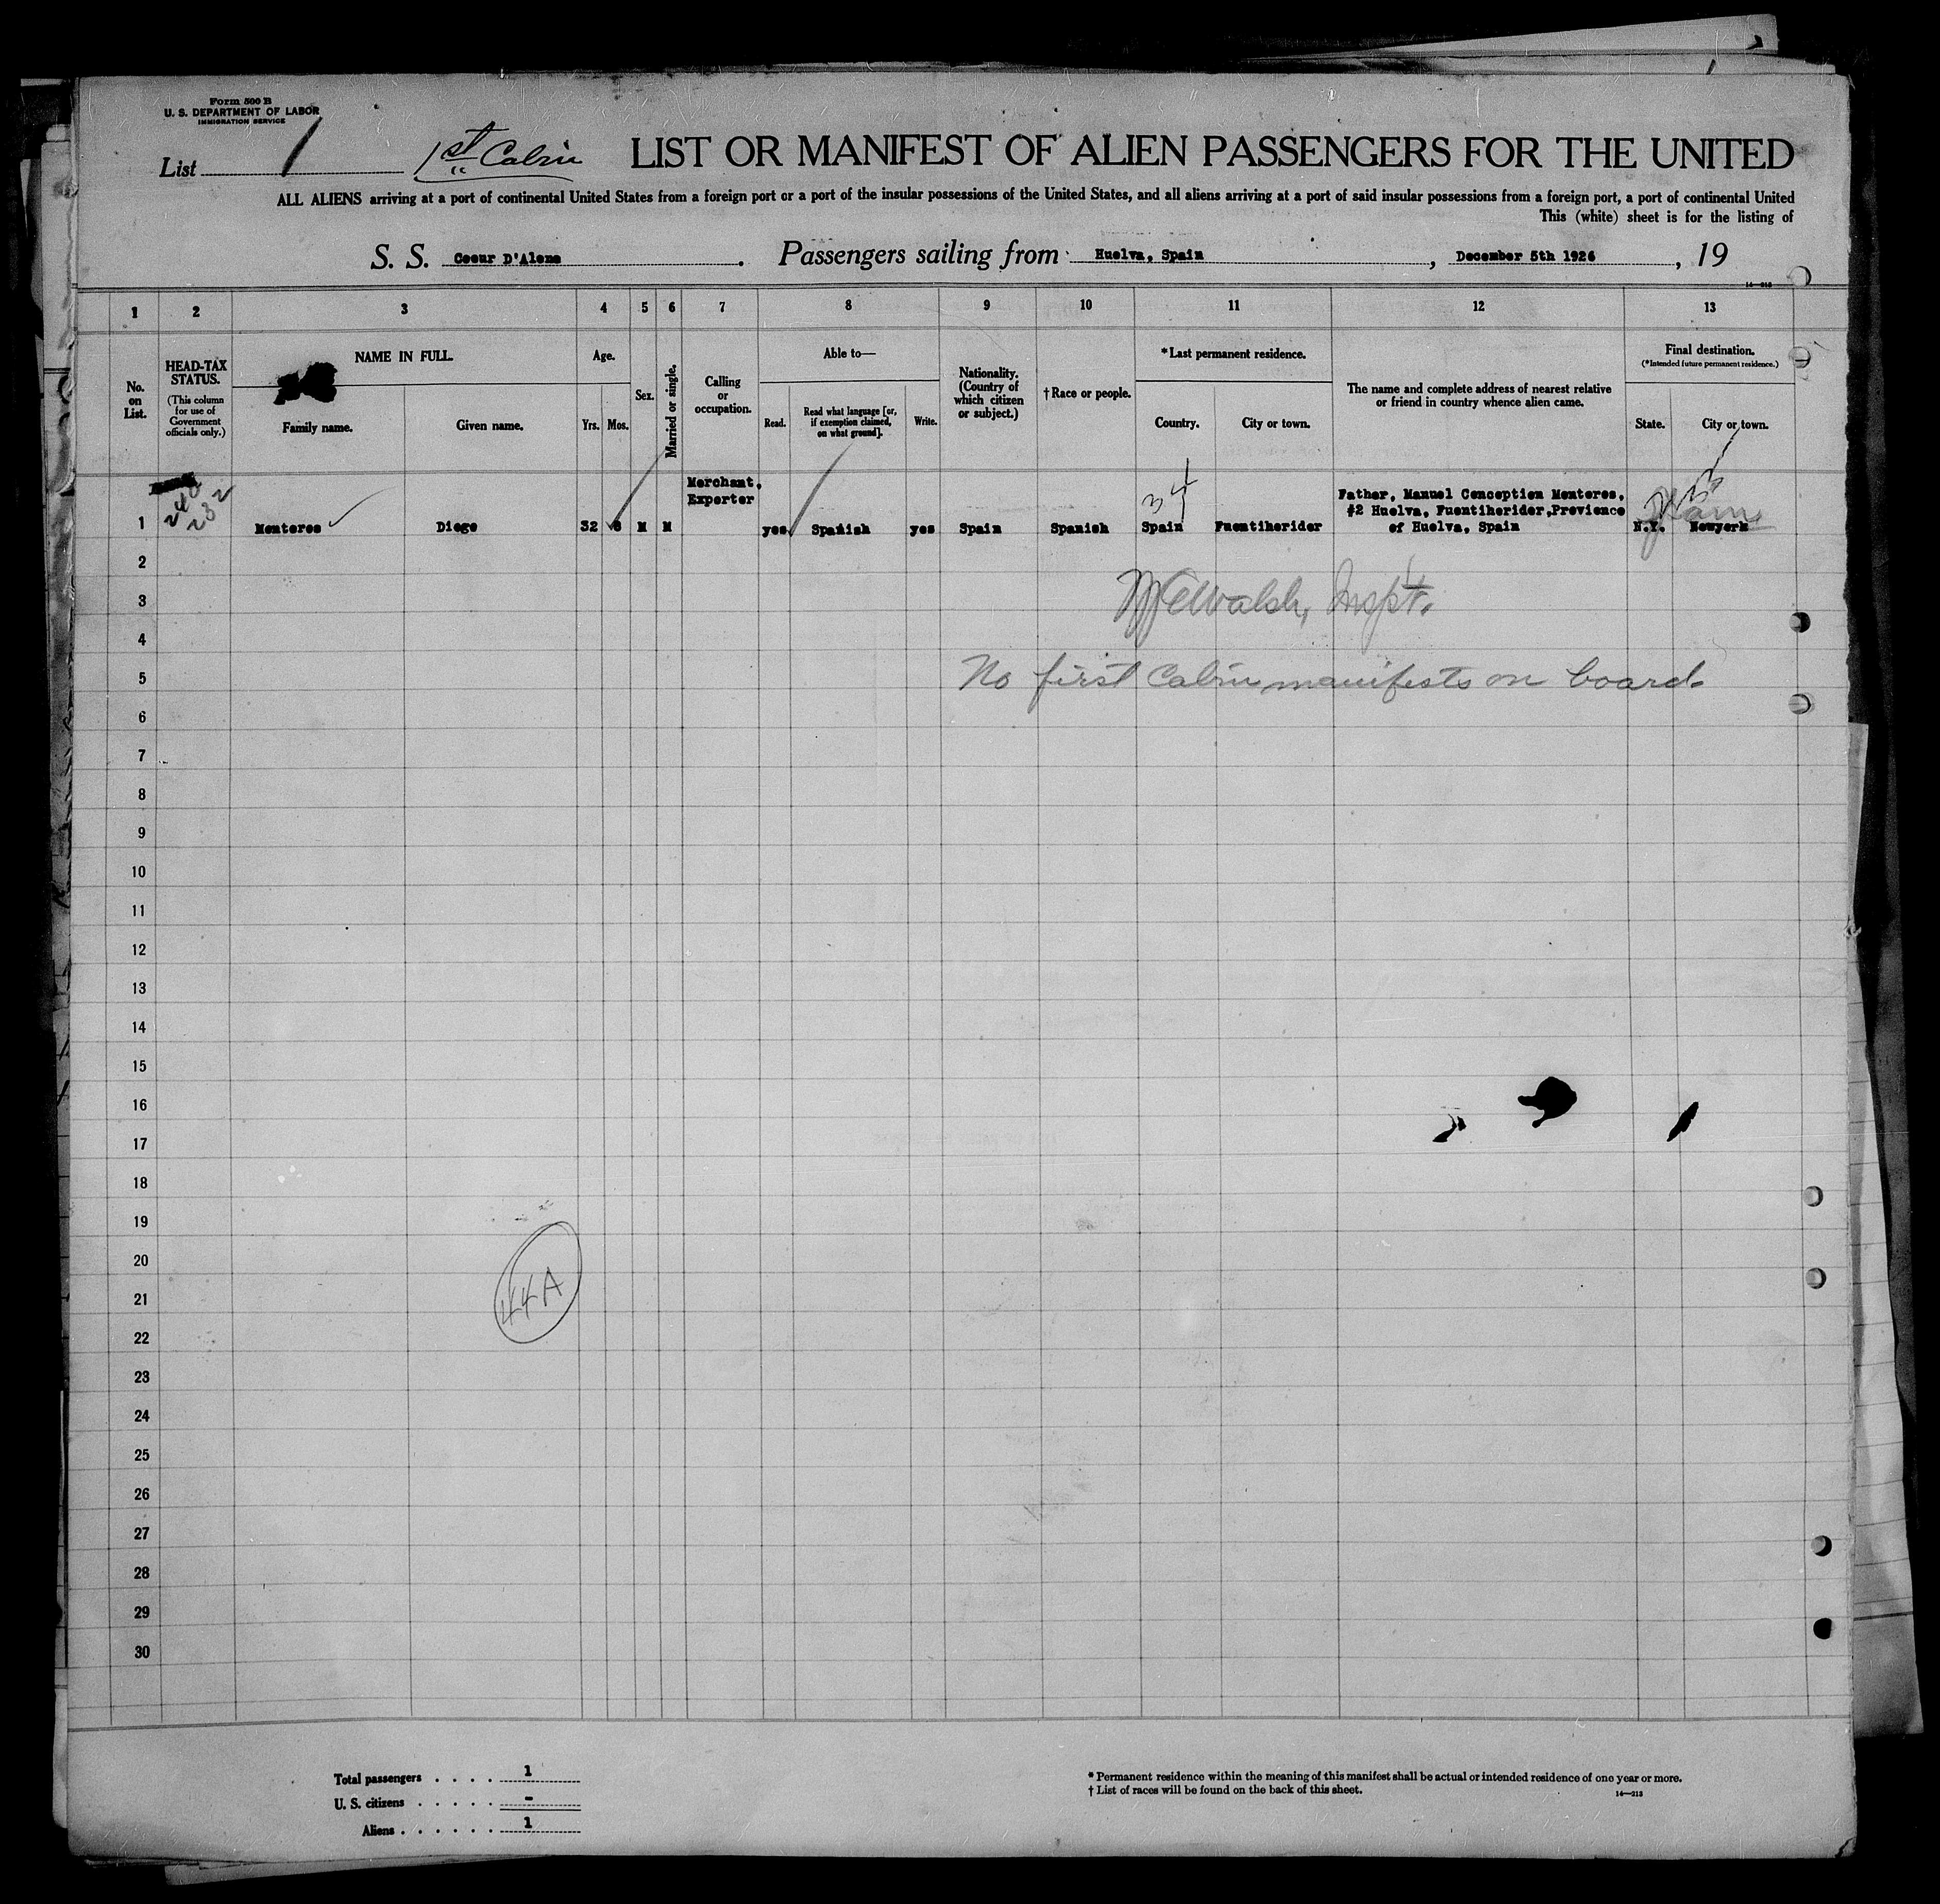 Form 500 B
U. S. DEPARTMENT OF LABOR
IMMIGRATION SERVICE
List 1
1st Cabin
LIST OR MANIFEST OF ALIEN PASSENGERS FOR THE UNITED
ALL ALIENS arriving at a port of continental United States from a foreign port or a port of the insular possessions of the United States, and all aliens arriving at a port of said insular possessions from a foreign port, a port of continental United
This (white) sheet is for the listing of
S. S. Coeur D'Alene. Passengers sailing from Huelva, Spain, December 5th 1926, 19
14—213
1 2 3 4 5 6 7 8 9 10 11 12 13
No. on List.
HEAD-TAX STATUS.
(This column for use of Government officials only.)
NAME IN FULL.
Family name. Given name.
Age.
Yrs. Mos.
Sex.
Married or single.
Calling or occupation.
Able to—
Read. Read what language [or, if exemption claimed, on what ground]. Write.
Nationality. (Country of which citizen or subject.)
† Race or people.
* Last permanent residence.
Country. City or town.
The name and complete address of nearest relative or friend in country whence alien came.
Final destination.
(* Intended future permanent residence.)
State. City or town.
Merchant,
Exporter
Father, Manuel Conception Monteros,
#2 Huelva, Fuentiherider, Provience
of Huelva, Spain
1 Monteros Diego 32 M M yes Spanish yes Spain Spanish Spain Fuentiherider N.Y. Newyork
2
3
Walsh, Inspt.
4
5 No first Cabin manifests on board.
6
7
8
9
10
11
12
13
14
15
16
17
18
19
20
21 44A
22
23
24
25
26
27
28
29
30
Total passengers . . . . 1
U. S. citizens . . . . . -
Aliens . . . . . . 1
* Permanent residence within the meaning of this manifest shall be actual or intended residence of one year or more.
† List of races will be found on the back of this sheet.
14—213